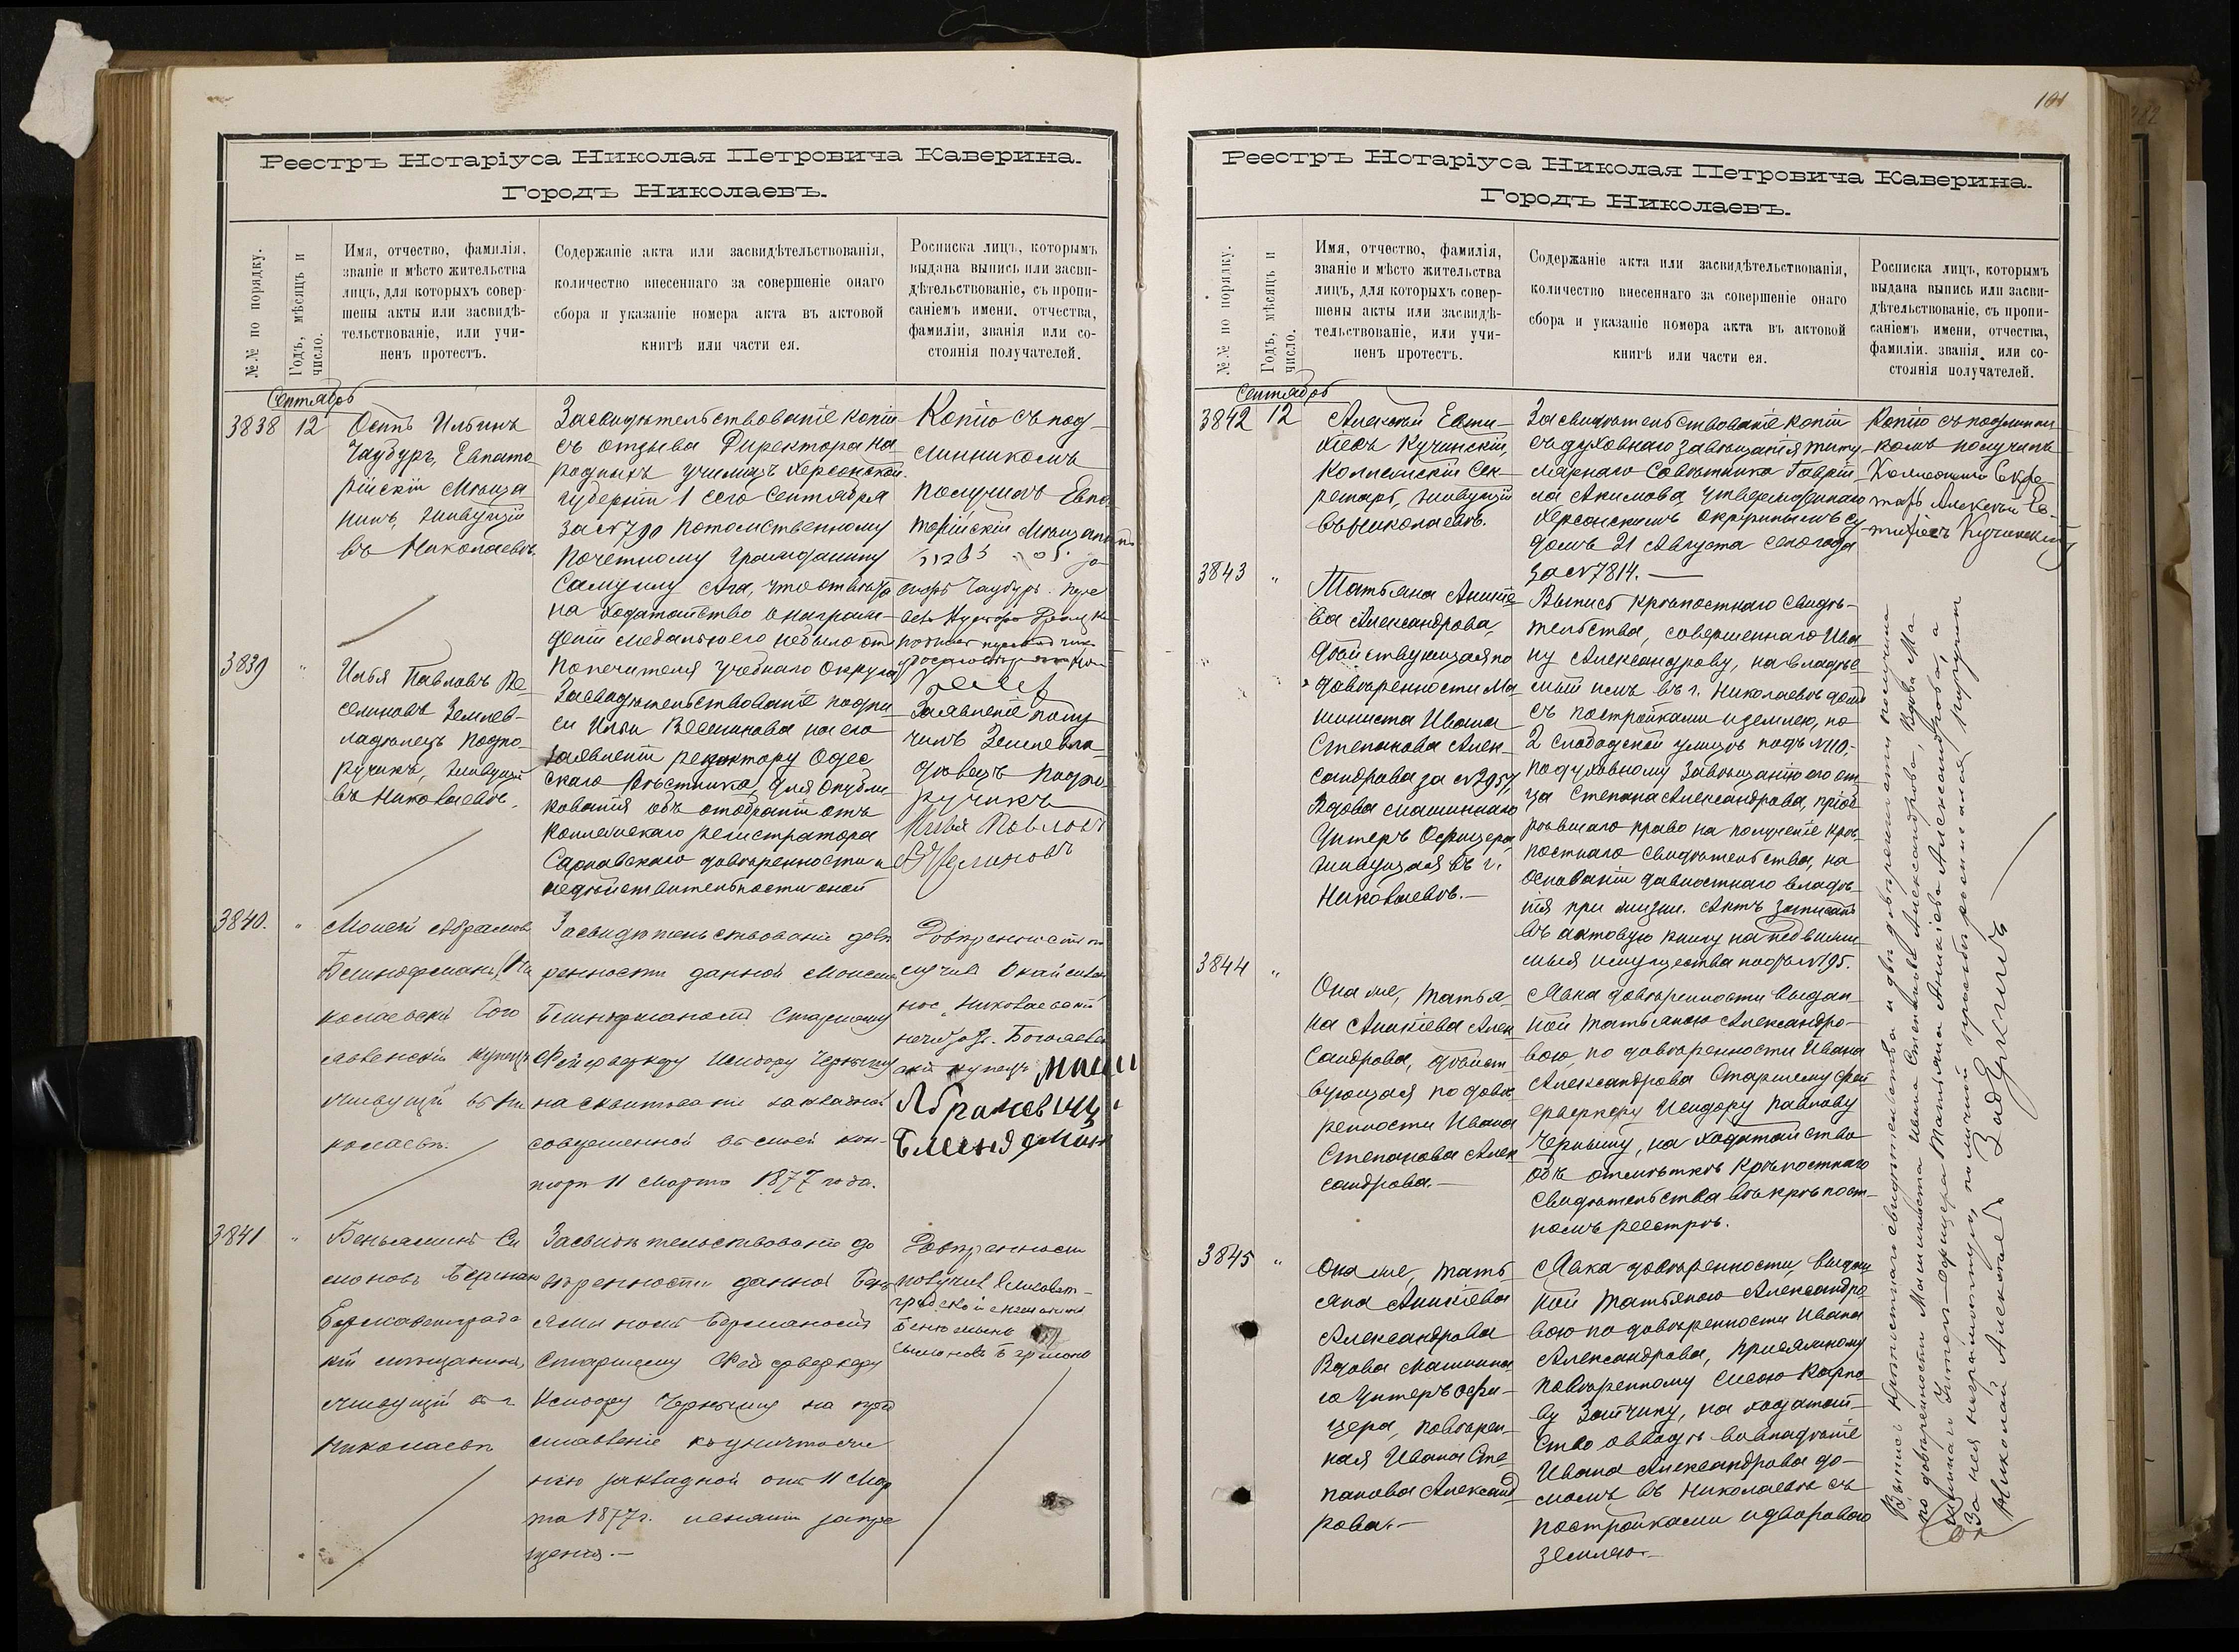 Реестръ Нотаріуса Николая Петровича Каверина.
Городъ Николаевъ.
№№ по порядку.
Годъ, мѣсяцъ и
число.
Имя, отчество, фамилія,
званіе и мѣсто жительства
лицъ, для которыхъ совер-
шены акты или засвидѣ-
тельствованіе, или учи-
ненъ протестъ.
Содержаніе акта или засвидѣтельствованія,
количество внесеннаго за совершеніе онаго
сбора и указаніе номера акта въ актовой
книгѣ или части ея.
Росписка лицъ, которымъ
выдана выпись или засви-
дѣтельствованіе, съ пропи-
саніемъ имени, отчества,
фамиліи, званія или со-
стоянія получателей.
Сентябрь
3838
12
Осипъ Ильинъ
Чаубургъ, Евпато
рійскій Мѣща
нинъ, живущій
въ Николаевѣ.
Засвидѣтельствованіе копіи
съ отзыва Директора на
родныхъ училищъ Херсонской
губерніи 1 сего Сентября
за №790 потомственному
почетному гражданину
Самуилу
что отвѣта
на ходатайство о награж-
деніи медалью его небыло отъ
попечителя учебнаго округа
Копію съ под
линникомъ
получилъ Евпа
торійскій Мѣщанинъ
3839
"
Илья Павловъ Ве
селиновъ Землев-
ладѣлецъ Подпо
ручикъ, живущій
въ Николаевѣ.
Засвидѣтельствованіе подпи
си Ильи Веселинова на его
заявленіи редактору Одес
скаго Вѣстника, для опубли
кованія объ отобраніи отъ
коллежскаго регистратора
Сарнавскаго довѣренности и
недѣйствительности оной
Заявленіе полу
чилъ Землевла
дѣлецъ Подпо
ручикъ
Илья Павловъ
Веселиновъ
3840.
"
Моисей Абрамовъ
Блиндманъ, Ни
колаевскій Бого
явленскій купецъ
живущій въ Ни
колаевѣ.
Засвидѣтельствованіе довѣ
ренности данной Моисеемъ
Блиндманомъ Старшему
Фейерверкеру Исидору Чернышу
на
закладной
совершенной въ сей кон-
торѣ 11 Марта 1877 года.
Довѣренность по
лучилъ
Николаевскій
купецъ Мои
Абрамовичъ
Блиндман
3841
"
Беньяминъ Си
моновъ Берман
Елисаветградс
кій мѣщанинъ,
живущій въ г.
Николаевѣ
Засвидѣтельствованіе до
вѣренности данной Бень
яминомъ Берманомъ
Старшему Фейерверкеру
Исидору Чернышу на пред
ставленіе къ уничтоже
нію закладной отъ 11 Мар
та 1877 г. и снятіи запре
щенія.—
Довѣренность
получилъ Елисавет-
градскій мѣщанинъ
Беньяминъ
Симоновъ Берман
101
Реестръ Нотаріуса Николая Петровича Каверина.
Городъ Николаевъ.
№№ по порядку.
Годъ, мѣсяцъ и
число.
Имя, отчество, фамилія,
званіе и мѣсто жительства
лицъ, для которыхъ совер-
шены акты или засвидѣ-
тельствованіе, или учи-
ненъ протестъ.
Содержаніе акта или засвидѣтельствованія,
количество внесеннаго за совершеніе онаго
сбора и указаніе номера акта въ актовой
книгѣ или части ея.
Росписка лицъ, которымъ
выдана выпись или засви-
дѣтельствованіе, съ пропи-
саніемъ имени, отчества,
фамиліи, званія или со-
стоянія получателей.
Сентябрь
3842
12
Алексѣй Евти-
хіевъ Кучинскій,
Коллежскій Сек
ретарь, живущій
въ Николаевѣ.
Засвидѣтельствованіе копіи
съ духовнаго завѣщанія титу
лярнаго Совѣтника Гаврі
ила Акимова утвержденнаго
Херсонскимъ окружнымъ Су
домъ 21 Августа сего года
за №7814.—
Копію съ подлинни
комъ получилъ
Коллежскій Секре-
тарь Алексѣй Ев-
тихіевъ Кучинскій
3843
"
Татьяна Аникіе
ва Александрова,
дѣйствующая по
довѣренности Ма
шиниста Ивана
Степанова Алек
сандрова за №2957,
Вдова машиннаго
Унтеръ Офицера,
живущая въ г.
Николаевѣ.—
Выпись крѣпостнаго свидѣ-
тельства, совершеннаго Ива
ну Александрову, на владѣе
мый имъ въ г. Николаевѣ домъ
съ постройками и землею, по
2 Слободской улицѣ подъ №110,
по духовному завѣщанію его от
ца Степана Александрова, пріоб
рѣвшаго право на полученіе крѣ
постнаго свидѣтельства, на
основаніи давностнаго владѣ
нія при жизни. Актъ записанъ
въ актовую книгу на недвижи
мыя имущества подъ №195.
3844
"
Она же, Татья
на Аникіева Алек
сандрова, дѣйст
вующая по довѣ
ренности Ивана
Степанова Алек
сандрова.—
Явка довѣренности выдан
ной Татьяною Александро-
вою, по довѣренности Ивана
Александрова Старшему фей
ерверкеру Исидору Павлову
Чернышу, на ходатайство
объ отмѣткѣ крѣпостнаго
свидѣтельства въ крѣпост-
номъ реестрѣ.
3845
"
Она же, Тать
яна Аникіева
Александрова
Вдова машинна
го Унтеръ офи-
цера, повѣрен-
ная Ивана Сте-
панова Александ
рова.—
Явка довѣренности, выдан
ной Татьяною Александро
вою по довѣренности Ивана
Александрова, присяжному
повѣренному Сысою Карпо
ву Зайчику, на ходатай-
ство о вводѣ во владѣніе
Ивана Александрова до-
момъ въ Николаевѣ съ
постройками и дворовою
землею.—
Выпись крѣпостнаго свидѣтельства и двѣ довѣренности получила
по довѣренности Машиниста Ивана Степанова Александрова, Вдова Ма
шиннаго Унтеръ-офицера Татьяна Аникіева Александрова, а
за нея неграмотную, по личной просьбѣ росписался
Николай Алексѣевъ